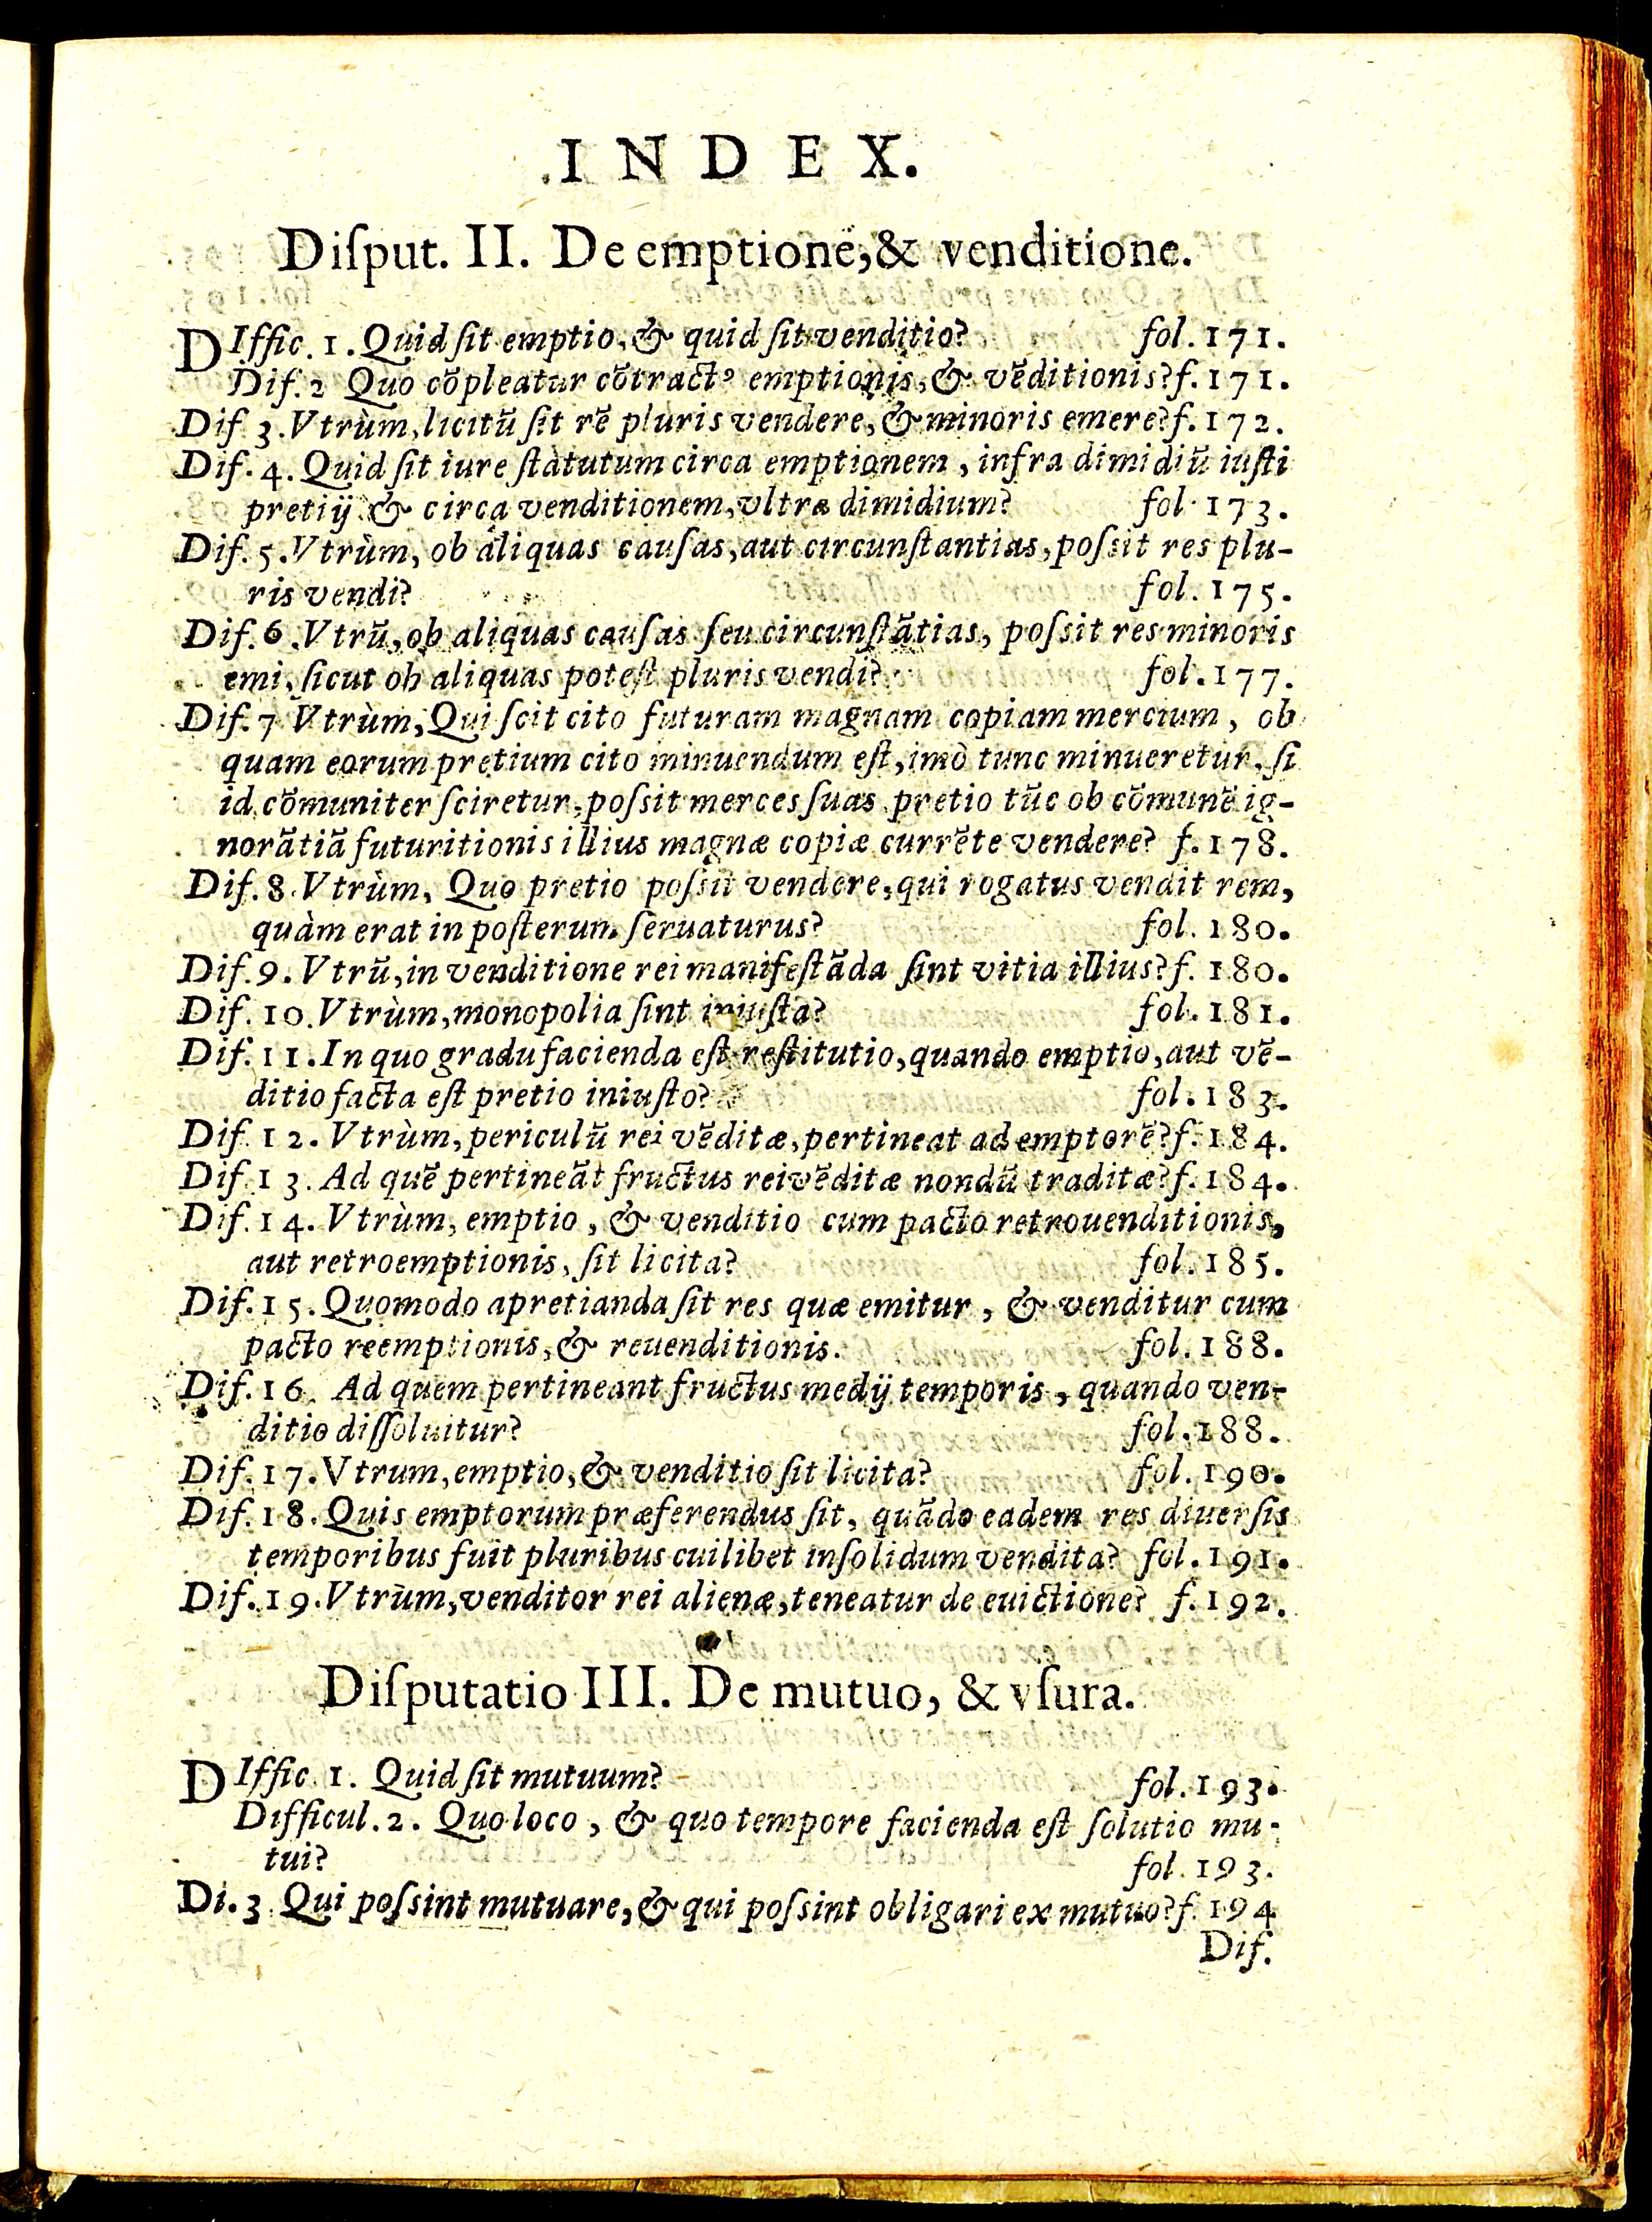 INDEX.
Diſput. II. De emptione, & venditione.
DIffic. 1. Quid ſit emptio, & quid ſit venditio? fol. 171.
Dif. 2 Quo cõpleatur cõtractꝰ emptionis, & vẽditionis? f. 171.
Dif 3. Vtrùm, licitũ ſit rẽ pluris vendere, & minoris emere? f. 172.
Dif. 4. Quid ſit iure ſtatutum circa emptionem, infra dimidiũ iuſti
pretij & circa venditionem, vltra dimidium? fol. 173.
Dif. 5. Vtrùm, ob aliquas cauſas, aut circunſtantias, poſsit res plu-
ris vendi? fol. 175.
Dif. 6. Vtrũ, ob aliquas cauſas ſeu circunſtãtias, poſsit res minoris
emi, ſicut ob aliquas poteſt pluris vendi? fol. 177.
Dif. 7 Vtrùm, Qui ſcit cito futuram magnam copiam mercium, ob
quam eorum pretium cito minuendum eſt, imò tunc minueretur, ſi
id cõmuniter ſciretur, poſsit merces ſuas pretio tũc ob cõmunẽ ig-
norãtiã futuritionis illius magnæ copiæ currẽte vendere? f. 178.
Dif. 8. Vtrùm, Quo pretio poſsit vendere, qui rogatus vendit rem,
quàm erat in poſterum ſeruaturus? fol. 180.
Dif. 9. Vtrũ, in venditione rei manifeſtãda ſint vitia illius? f. 180.
Dif. 10. Vtrùm, monopolia ſint iniuſta? fol. 181.
Dif. 11. In quo gradu facienda eſt reſtitutio, quando emptio, aut vẽ-
ditio facta eſt pretio iniuſto? fol. 183.
Dif. 12. Vtrùm, periculũ rei vẽditæ, pertineat ad emptorẽ? f. 184.
Dif. 13. Ad quẽ pertineãt fructus rei vẽditæ nondũ traditæ? f. 184.
Dif. 14. Vtrùm, emptio, & venditio cum pacto retrouenditionis,
aut retroemptionis, ſit licita? fol. 185.
Dif. 15. Quomodo apretianda ſit res quæ emitur, & venditur cum
pacto reemptionis, & reuenditionis. fol. 188.
Dif. 16. Ad quem pertineant fructus medij temporis, quando ven-
ditio diſſoluitur? fol. 188.
Dif. 17. Vtrum, emptio, & venditio ſit licita? fol. 190.
Dif. 18. Quis emptorum præferendus ſit, quãdo eadem res diuerſis
temporibus fuit pluribus cuilibet inſolidum vendita? fol. 191.
Dif. 19. Vtrùm, venditor rei alienæ, teneatur de euictione? f. 192.
Diſputatio III. De mutuo, & vſura.
DIffic. 1. Quid ſit mutuum? fol. 193.
Difficul. 2. Quo loco, & quo tempore facienda eſt ſolutio mu-
tui? fol. 193.
Di. 3 Qui poſsint mutuare, & qui poſsint obligari ex mutuo? f. 194
Dif.